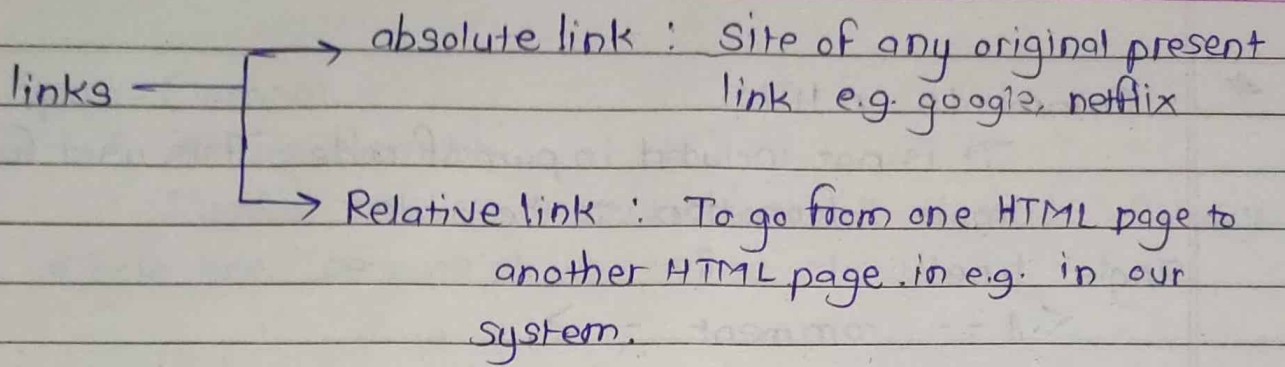 absolute link : Site of any original present
links
link e.g. google, netflix
Relative link : To go from one HTML page to
another HTML page. in e.g. in our
system.